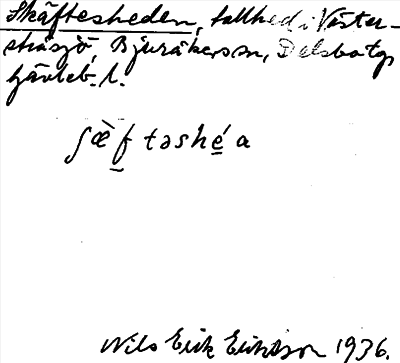 Skäftesheden, tallhed i Väster-
stråsjö, Bjuråkers sn, Delsbo tg
Gävleb. l.
ʃæ̀f təshé a
Nils Erik Eriksson 1936.